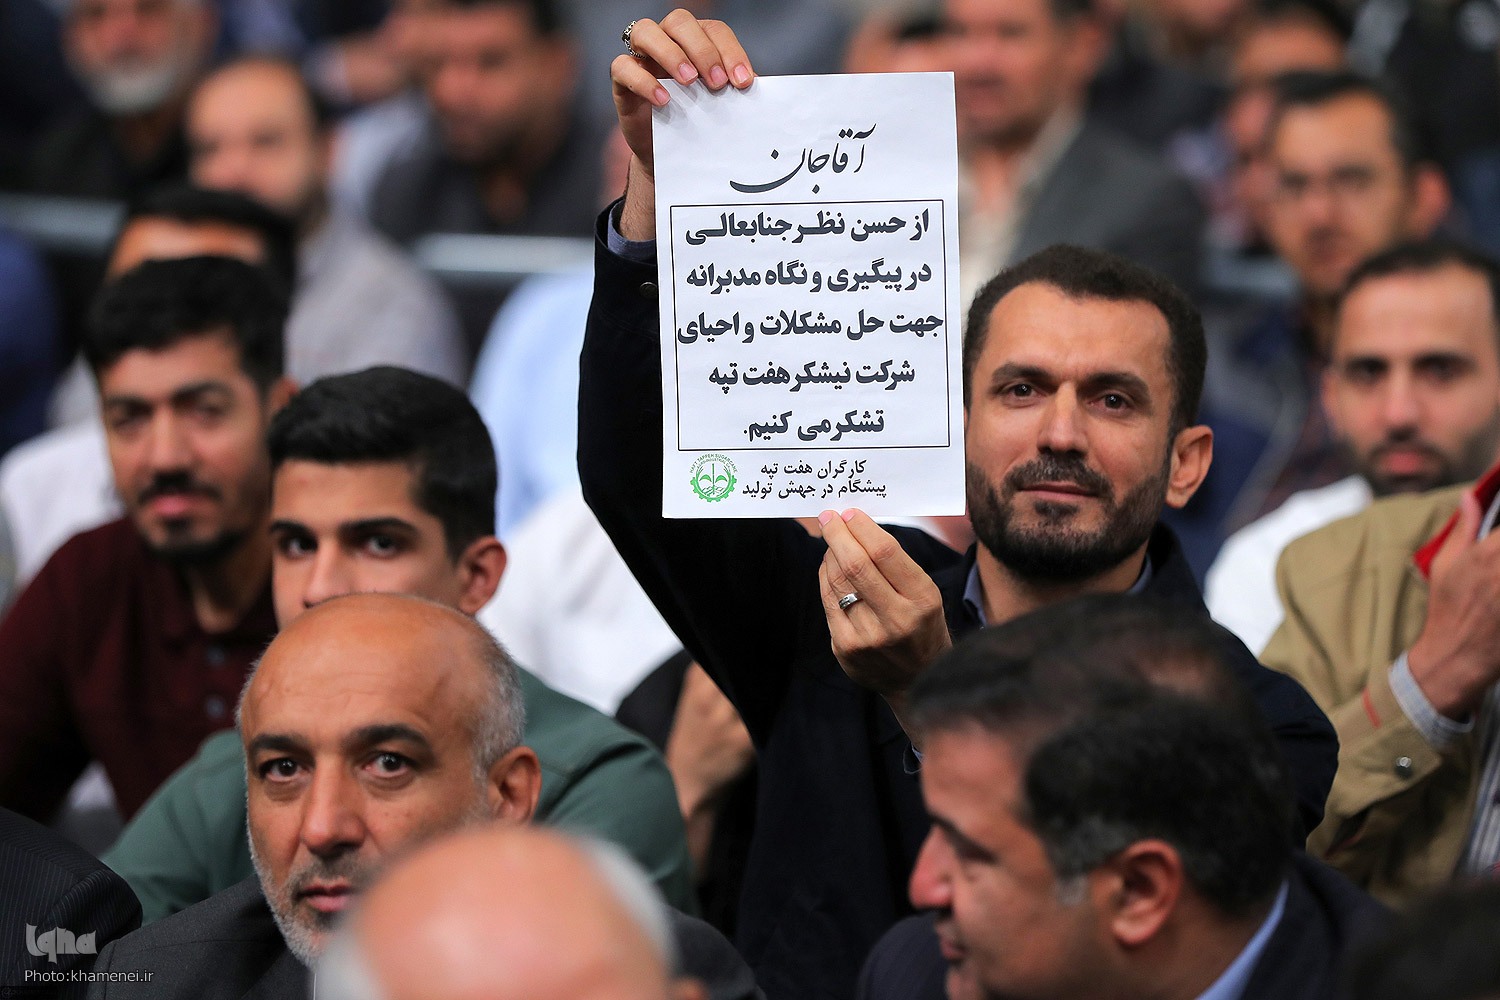 آقاجان
از حسن نظر جنابعالی
در پیگیری و نگاه مدبرانه
جهت حل مشکلات و احیای
شرکت نیشکر هفت تپه
تشکر می کنیم.
کارگران هفت تپه
پیشگام در جهش تولید
HAFT TAPPEH SUGARCANE
iqna
Photo:khamenei.ir